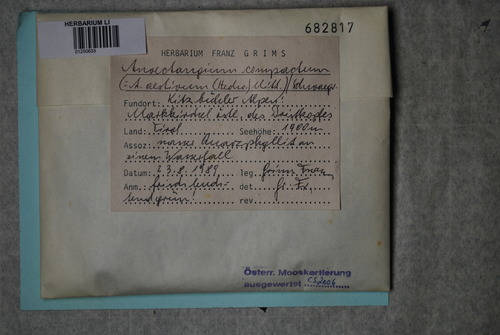 HERBARIUM LI
682817
HERBARIUM FRANZ GRIMS
Anoectangium compactum
(= A. aestivum (Hedw.) Mitt.) Schwaegr.
Fundort: Kitzbüheler Alpen:
des
Land: Tirol Seehöhe: 1900m
Assoz: nasses Quarzphyllit an
einem Wasserfall
Datum: 23.8.1989 leg. Grims Franz
Anm.: frisch det. Gr. Fr.
rev.
Österr. Mooskartierung
ausgewertet